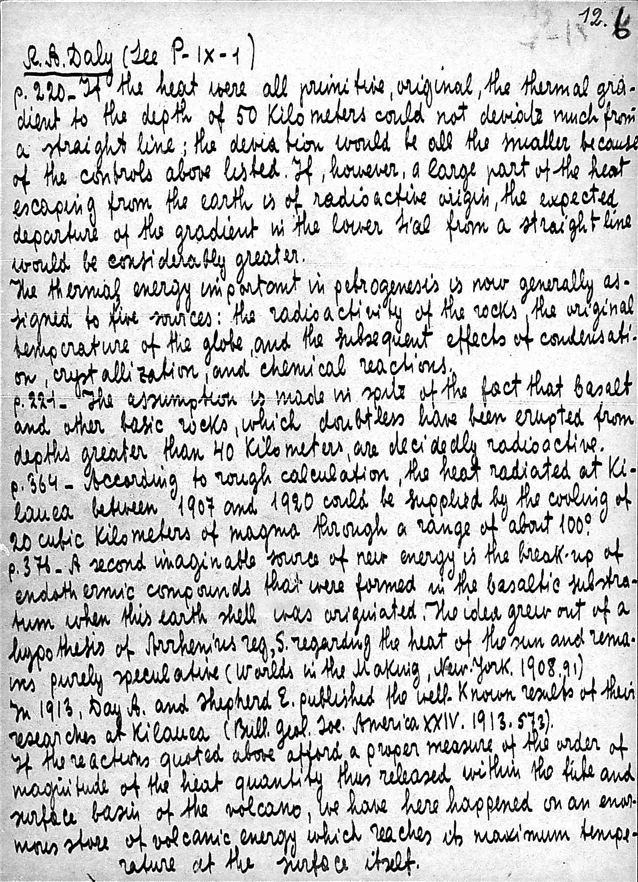 12. 6
R. A. Daly (See P-IX-1)
p. 220_ If the heat were all primitive, original, the thermal gra-
dient to the depth of 50 Kilometers could not deviate much from
a straight line; the deviation would be all the smaller because
of the controls above listed. If, however, a large part of the heat
escaping from the earth is of radioactive origin, the expected
departure of the gradient in the lower sial from a straight line
would be considerably greater.
The thermal energy important in petrogenesis is now generally as-
signed to five sources: the radioactivity of the rocks, the original
temperature of the globe, and the subsequent effects of condensati-
on, crystallization, and chemical reactions.
p. 221_ The assumption is made in spite of the fact that basalt
and other basic rocks, which doubtless have been erupted from
depths greater than 40 Kilometers, are decidedly radioactive.
p. 364_ According to rough calculation, the heat radiated at Ki-
lauea between 1907 and 1920 could be supplied by the cooling of
20 cubic Kilometers of magma through a range of about 100°.
p. 371_ A second imaginable source of new energy is the break-up of
endothermic compounds that were formed in the basaltic substra-
tum when this earth shell was originiated. The idea grew out of a
hypothesis of Arrhenius reg, S. regarding the heat of the sun and rema-
ins purely speculative (Worlds in the Making, New-York. 1908. 91.)
In 1913, Day A. and Shepherd E. published the well-Known results of their
researches at Kilauea (Bull. geol. Soc. America XXIV. 1913. 573).
If the reactions quoted above afford a proper measure of the order of
magnitude of the heat quantity thus released within the tube and
surface basin of the volcano, we have here happened on an enor-
mous store of volcanic energy which reaches its maximum tempe-
rature at the surface itself.